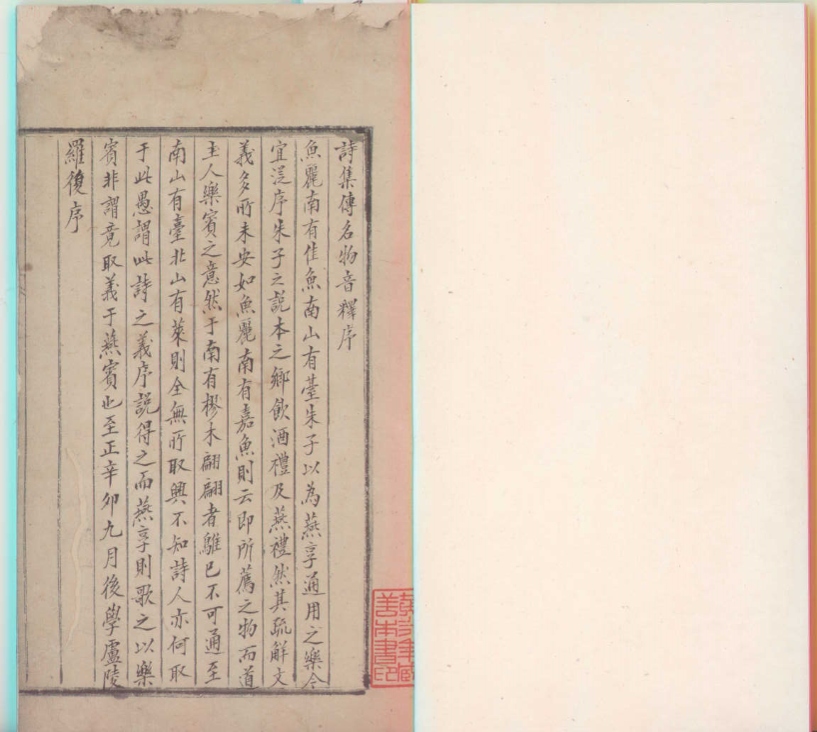 詩集傳名物音釋序
魚麗南有佳魚南山有臺朱子以為燕享通用之樂今
宜從序朱子之說本之鄉飲酒禮及燕禮然其疏解文
義多所未安如魚麗南有嘉魚則云即所薦之物而道
主人樂賓之意然于南有樛木翩翩者鵻已不可通至
南山有臺北山有萊則全無所取興不知詩人亦何取
于此愚謂此詩之義序說得之而燕享則歌之以樂
賓非謂竟取義于燕賓也至正辛卯九月後學盧陵
羅復序
善本書印